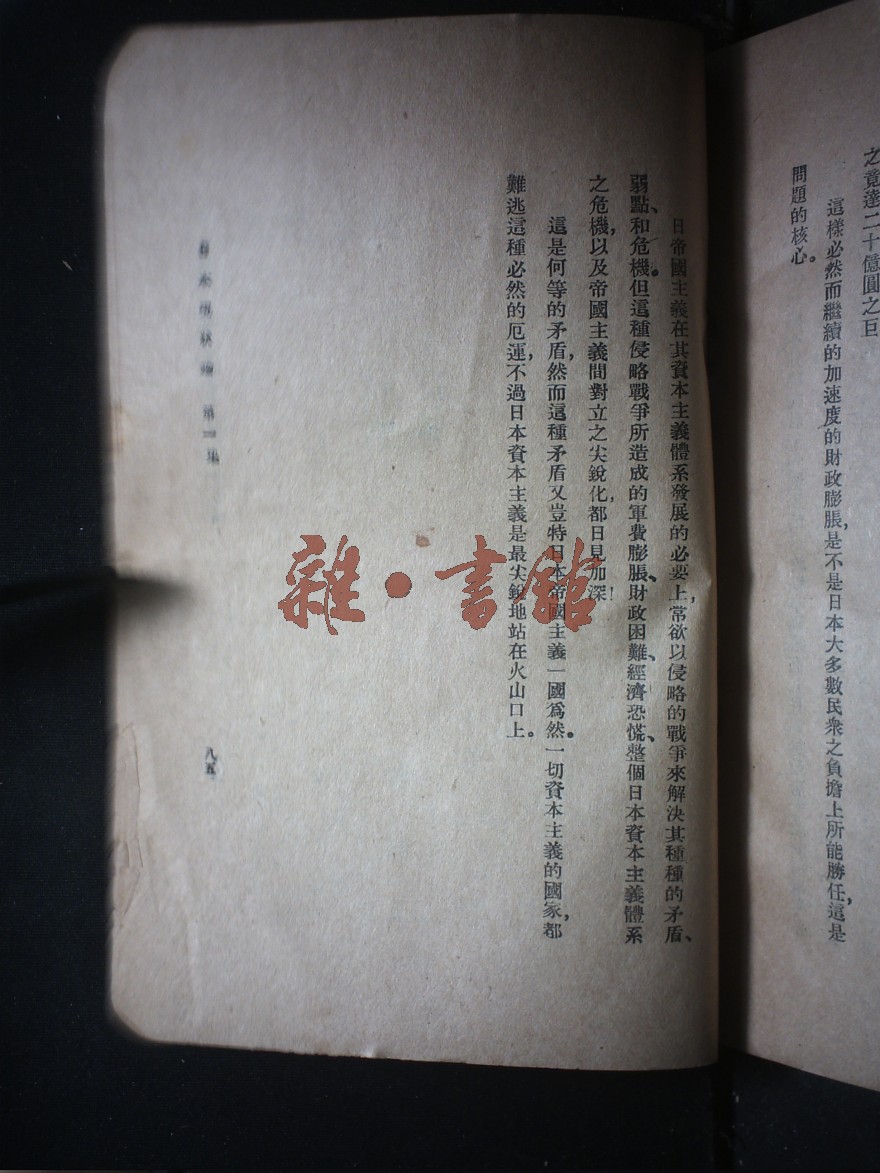 之竟達二十億圓之巨
這樣必然而繼續的加速度的財政膨脹,是不是日本大多數民衆之負擔上所能勝任,這是
問題的核心。
日帝國主義在其資本主義體系發展的必要上,常欲以侵略的戰爭來解決其種種的矛盾、
弱點、和危機。但這種侵略戰爭所造成的軍費膨脹、財政困難、經濟恐慌、整個日本資本主義體系
之危機,以及帝國主義間對立之尖銳化,都日見加深!
這是何等的矛盾,然而這種矛盾又豈特日本帝國主義一國爲然。一切資本主義的國家,都
難逃這種必然的厄運,不過日本資本主義是最尖銳地站在火山口上。
第一集
八五
雜·書館